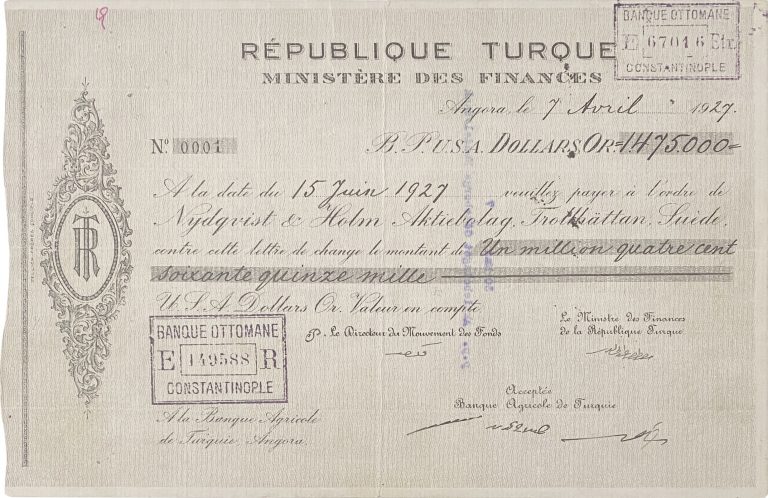 BANQUE OTTOMANE
E 67016 Etr.
CONSTANTINOPLE
RÉPUBLIQUE TURQUE
MINISTÈRE DES FINANCES
Angora, le 7 Avril 1927.
Nº 0001 B. P. U.S.A. DOLLARS OR=1475.000=
A la date du 15 Juin 1927 veuillez payer à l'ordre de
Nydqvist & Holm Aktiebolag, Trollhättan, Suède,
contre cette lettre de change le montant de Un million quatre cent
soixante quinze mille
U.S.A. Dollars Or. Valeur en compte
P. Le Directeur du Mouvement des Fonds
Le Ministre des Finances
de la République Turque
TR
BANQUE OTTOMANE
E 149588 R
CONSTANTINOPLE
Acceptée
Banque Agricole de Turquie
A la Banque Agricole
de Turquie, Angora.